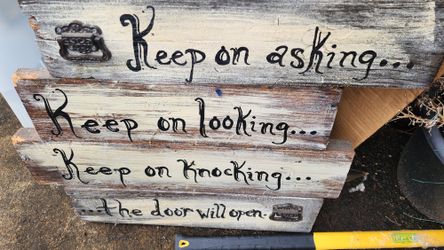 Keep on asking...
Keep on looking...
Keep on knocking...
...the door will open.